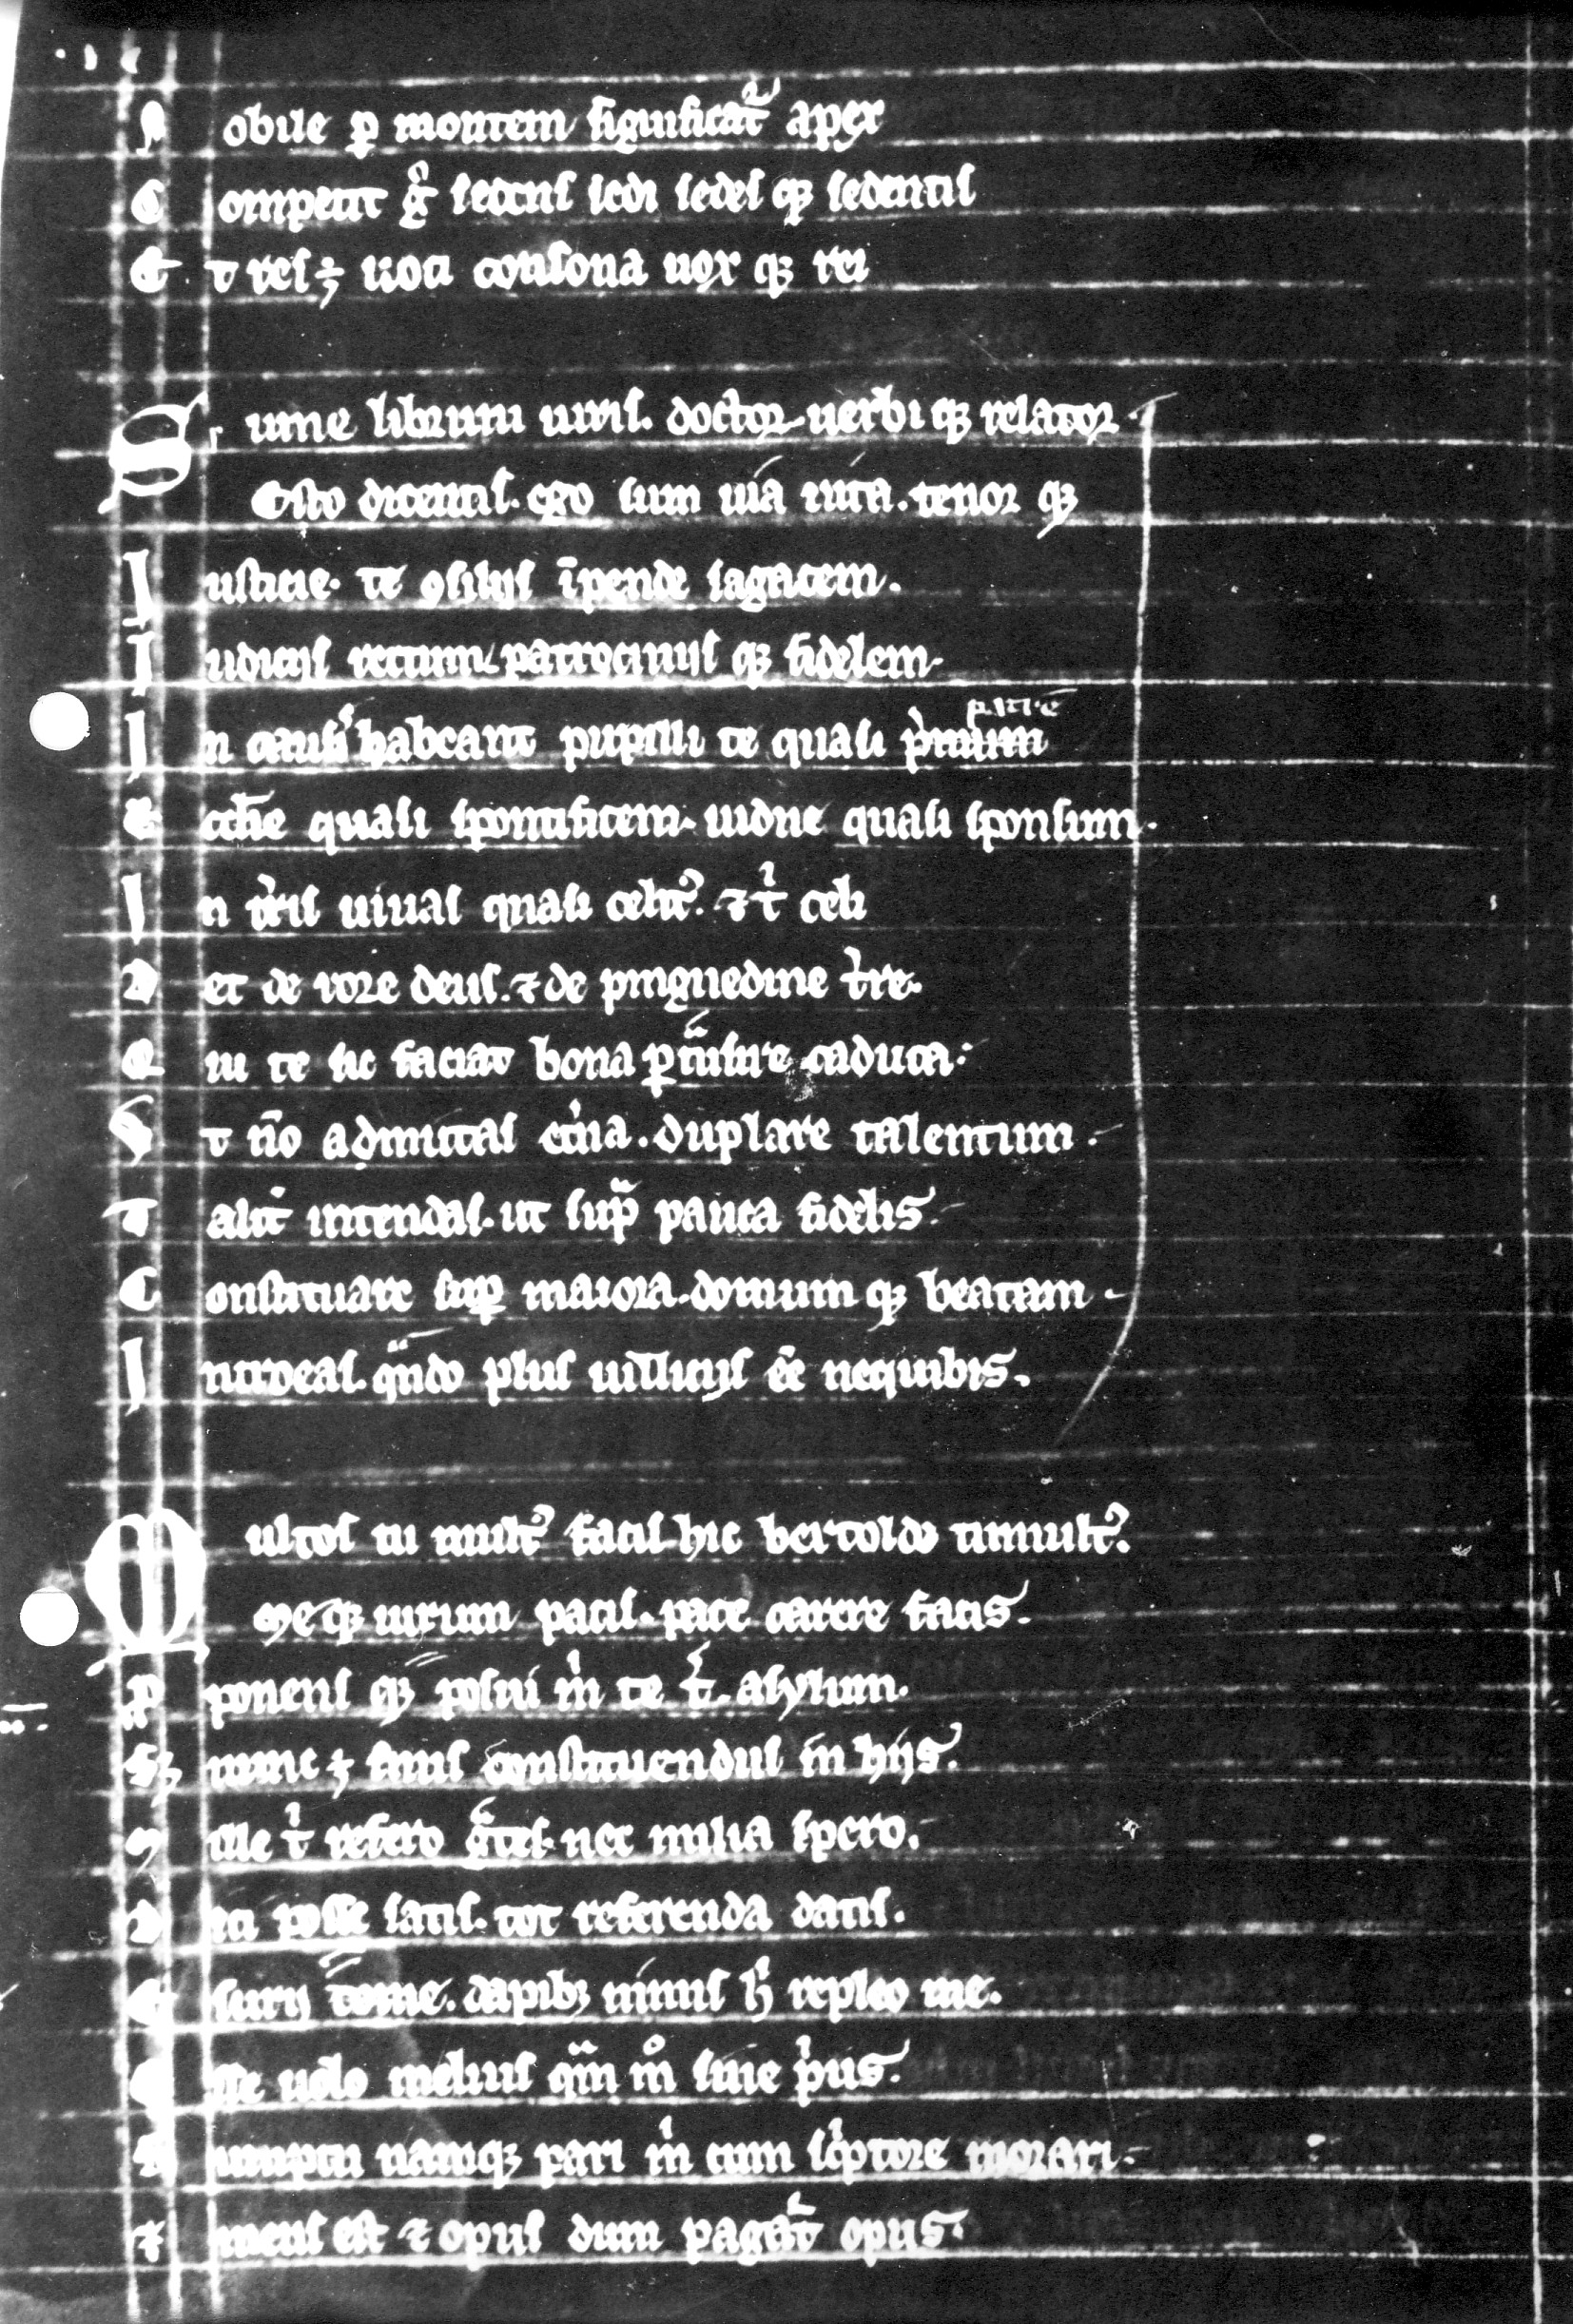 Nobile ꝑ montem significat᷑ apex
Competit gͦ sedens sedi sedes qꝫ sedentis
Et res ꝫ uoci consona uox qꝫ rei
Sume librum uiuis. doctor uerbi qꝫ relator
Esto dicentis. ego sum uia uita. tenor qꝫ
Iusticie. te ꝯsiliis īpende sagacem.
Iudiciis rectum patrociniis qꝫ fidelem.
patrē
In causis habeant pupilli te quasi pͥmum
Eccl̅ie quasi spontificem. uidue quasi sponsum.
In tͥris uiuas quasi celitꝰ. ⁊ tͥ celi
Det de rore deus. ⁊ de pinguedine tͥre.
Qui te sic faciat bona ꝑtͣnsire caduca.
Vt nō admittas etͥna. duplare talentum.
Talit͛ intendas. ut supͣ pauca fidelis.
Constituare suꝑ maiora. domum qꝫ beatam
Introeas. qͣndo plus uillicus eē nequibis.
Multos tu multꝰ facis hic bertolde tumultꝰ.
Me qꝫ uirum pacis. pace carere facis.
ponens qꝫ posui mͥ te tͣ. asylum.
Sꝫ nunc ꝫ suus constituendus in hiis.
Mille tͥ refero gͣtes. nec milia spero.
Dici posse satis. tot referenda datis.
dapibꝫ nimis hͥ repleo me.
Esse uolo melius qͣm mͦ siue pͥus.
namqꝫ pari mͥ cum scͥptore morari.
mens est ⁊ opus dum opus.